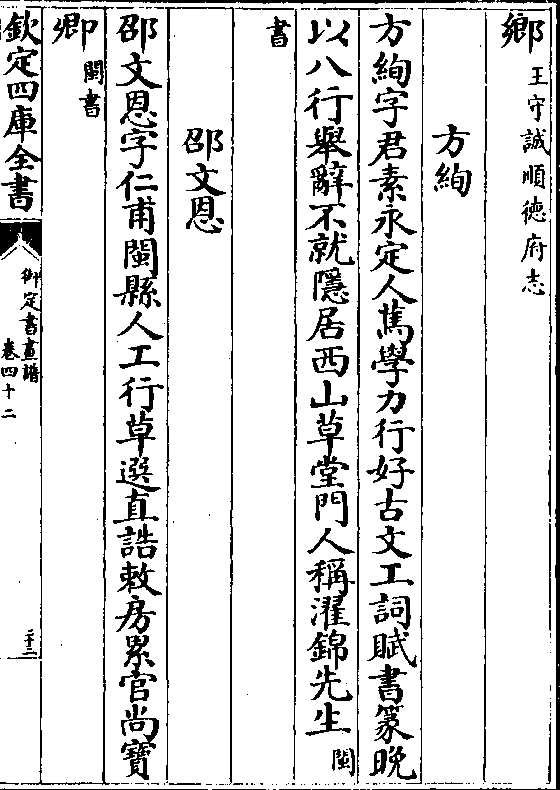 鄉王守誠順德府志
方絢
方絢字君素永定人篤學力行好古文工詞賦書篆晚
以八行舉辭不就隱居西山草堂門人稱濯錦先生閩
書
邵文恩
邵文恩字仁甫閩縣人工行草選直誥敕房累官尚寶
卿閩書
欽定四庫全書
御定書畫譜
卷四十二